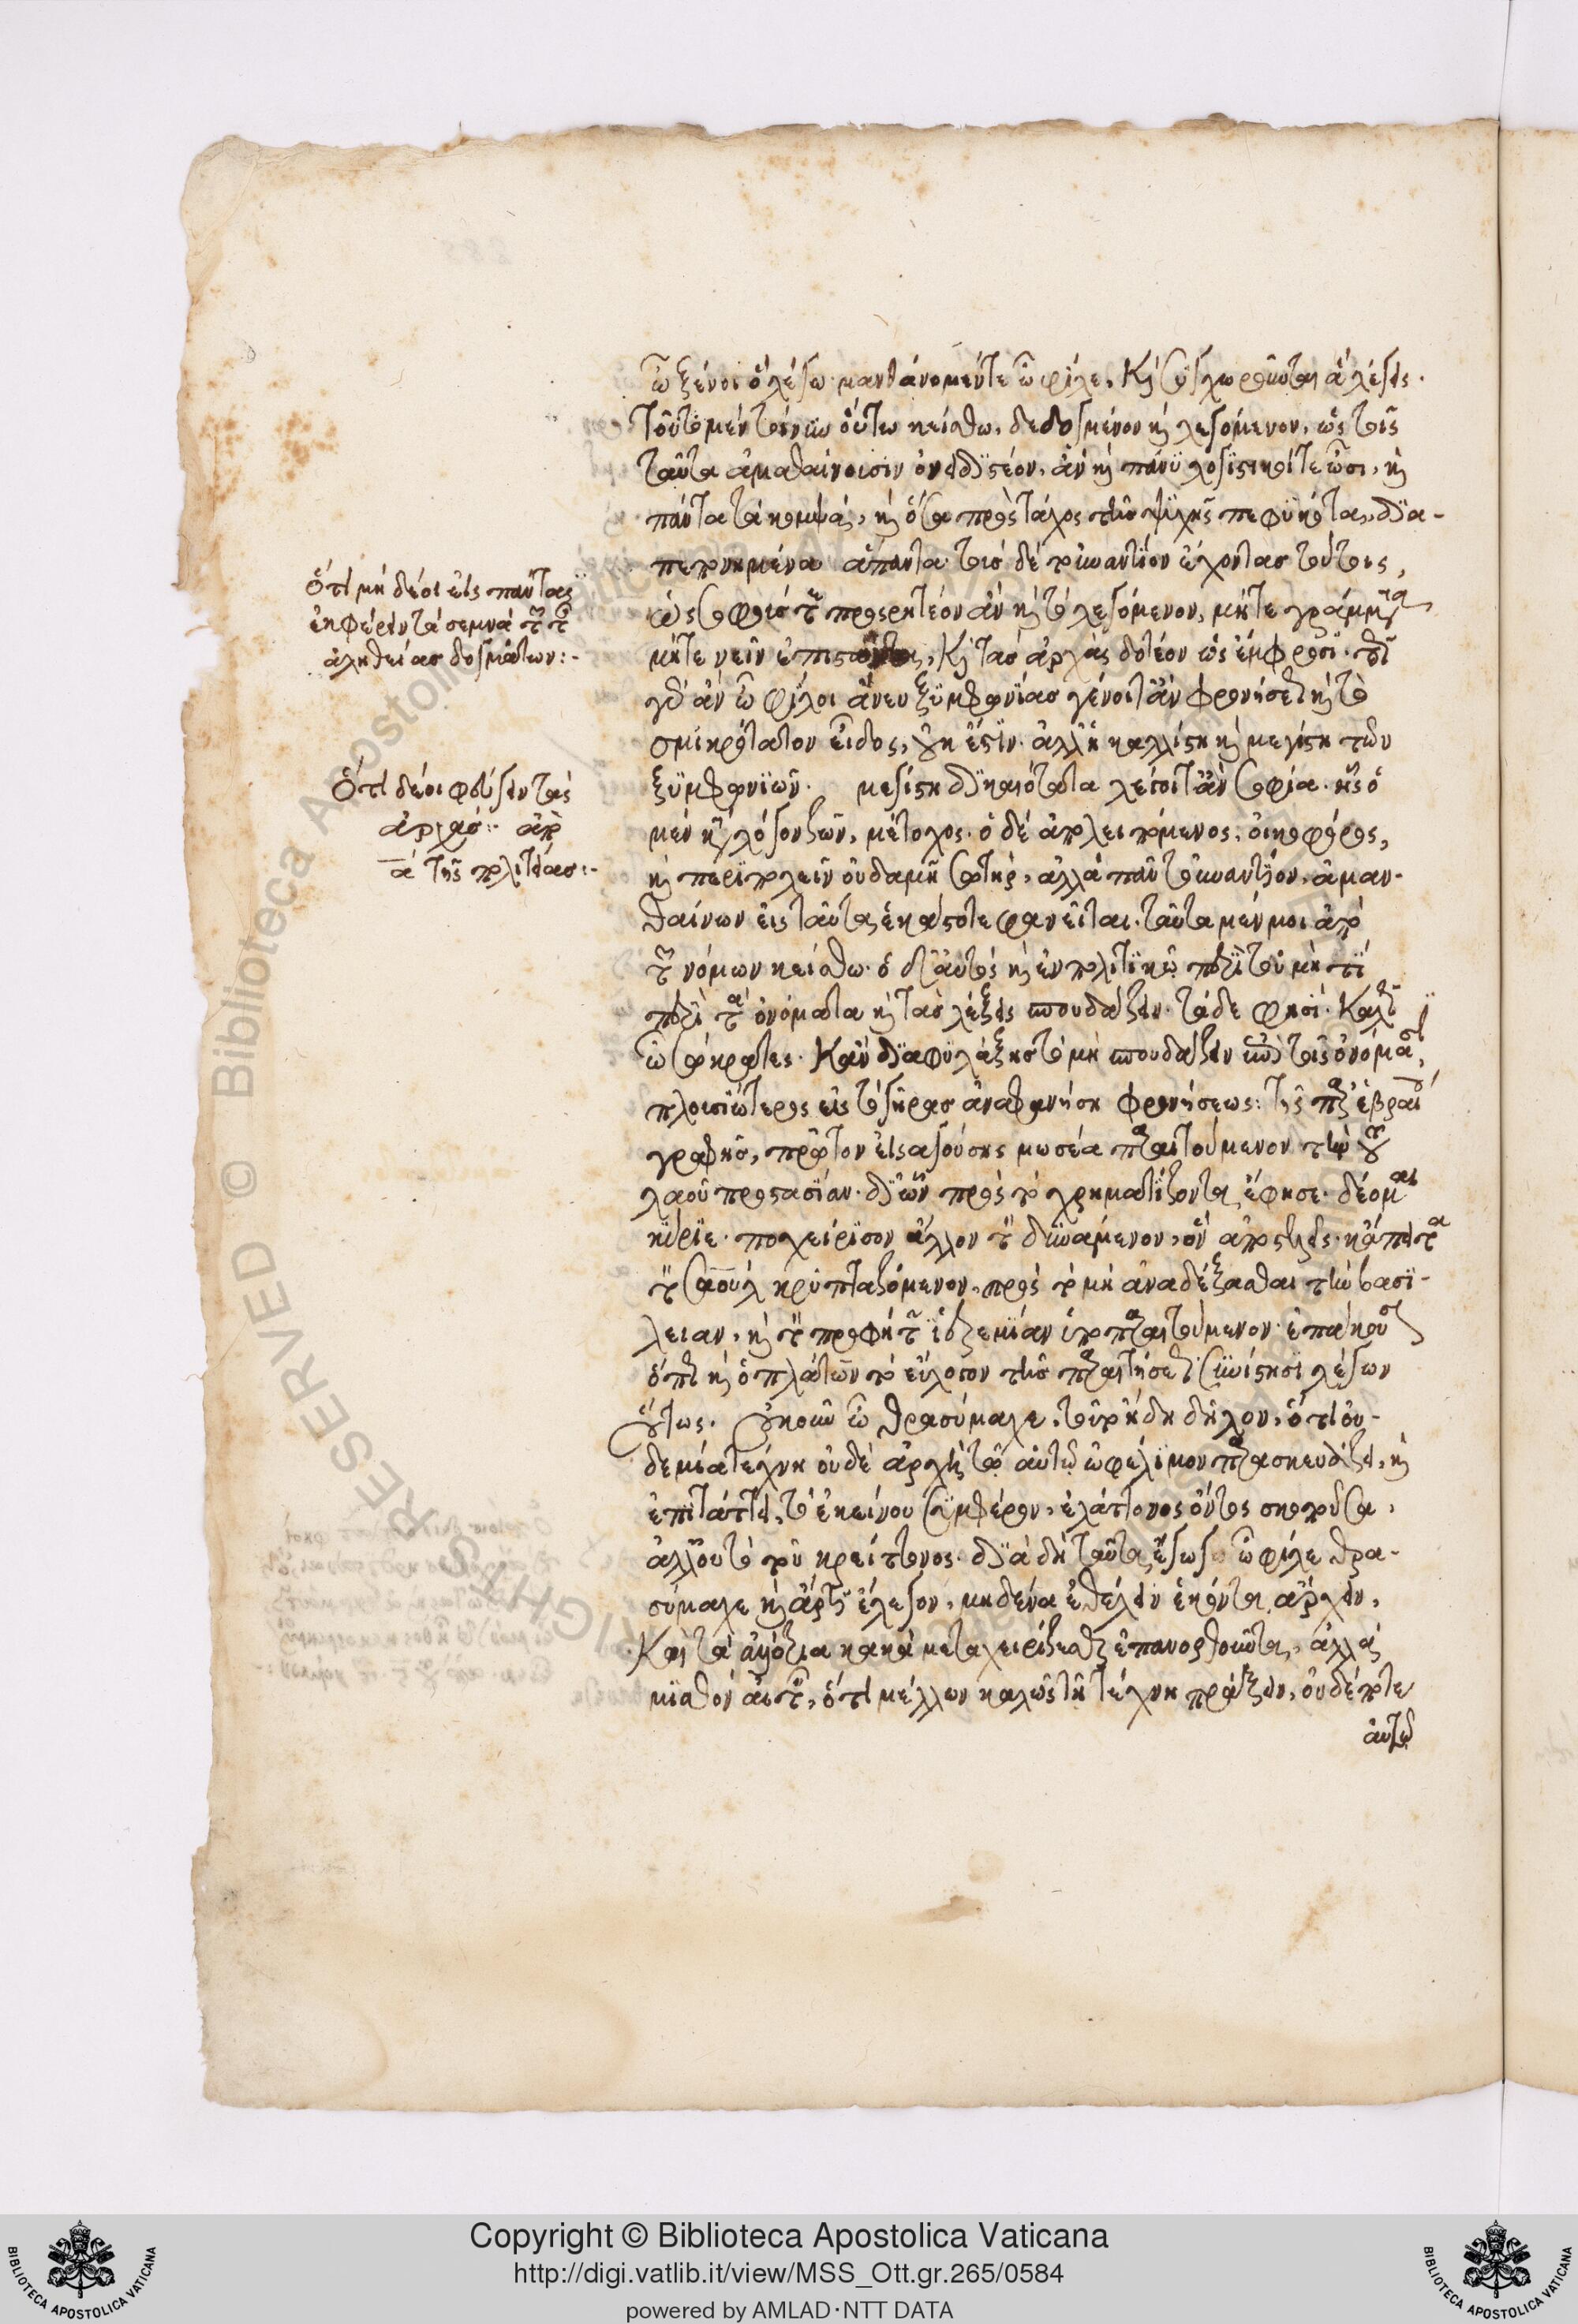 ὦ ξένοι ὃ λέγω. μανθάνομέν τε ὦ φίλε. καὶ συγχωροῦντα ἃ λέγεις.
Τοῦτο μὲν τοίνυν οὕτω κείσθω. δεδογμένον καὶ λεγόμενον, ὡς τοῖς
ταῦτα ἀμαθαίνουσιν ὀνειδιστέον, ἂν καὶ πάνυ λογιστικοί τε ὦσι, καὶ
πάντα τὰ κομψά, καὶ ὅσα πρὸς τάχος τῆς ψυχῆς πεφυκότα, δια-
πεπονημένα ἅπαντα. τοὺς δὲ τοὐναντίον ἔχοντας τούτοις,
ὡς σοφούς τε προσρητέον ἂν καὶ τὸ λεγόμενον, μήτε γράμματα
μήτε νεῖν ἐπίστωνται, καὶ τὰς ἀρχὰς δοτέον ὡς ἔμφροσι. πῶς
γὰρ ἂν ὦ φίλοι ἄνευ ξυμφωνίας γένοιτ' ἂν φρονήσεως καὶ τὸ
σμικρότατον εἶδος, οὐκ ἔστιν. ἀλλ' ἡ καλλίστη καὶ μεγίστη τῶν
ξυμφωνιῶν. μεγίστη δικαιότατα λέγοιτ' ἂν σοφία. ἧς ὁ
μὲν κατὰ λόγον ζῶν, μέτοχος. ὁ δὲ ἀπολειπόμενος, οἰκοφθόρος,
καὶ περὶ πόλιν οὐδαμῇ σωτήρ, ἀλλὰ πᾶν τοὐναντίον, ἀμαν-
θαίνων εἰς ταῦτα ἑκάστοτε φανεῖται. ταῦτα μέν μοι ἀπὸ
τῶν νόμων κείσθω. ὁ δ' αὐτὸς καὶ ἐν πολιτικῷ περὶ τοῦ μή τι
περὶ τὰ ὀνόματα καὶ τὰς λέξεις σπουδάζειν. τάδε φησί. καλῶς
ὦ σώκρατες. κἂν διαφυλάξῃς τὸ μὴ σπουδάζειν ἐπὶ τοῖς ὀνόμασι,
πλουσιώτερος εἰς τὸ γῆρας ἀναφανήσῃ φρονήσεως: τῆς παρ' ἑβραίοις
γραφῆς, πρῶτον εἰσαγούσης μωσέα παραιτούμενον τὴν τοῦ
λαοῦ προστασίαν. δι' ὧν πρὸς τὸν χρηματίζοντα ἔφησε. δέομαι
κύριε. προχείρισον ἄλλον τὸν δυνάμενον, ὃν ἀποστελεῖς. κἄπειτα
τὸν σαοὺλ κρυπταζόμενον, πρὸς τὸ μὴ ἀναδέξασθαι τὴν βασι-
λειαν, καὶ τὸν προφήτην ἱερεμίαν ὑποπαραιτούμενον. ἐπάκουσον
ὅπως καὶ ὁ πλάτων τὸ εὔλογον τῆς παραιτήσεως συνίστησι λέγων
οὕτως. οὐκοῦν ὦ θρασύμαχε, τοῦτο ἤδη δῆλον, ὅτι οὐ-
δεμία τέχνη οὐδὲ ἀρχὴ τὸ αὑτῷ ὠφέλιμον παρασκευάζει, καὶ
ἐπιτάττει, τὸ ἐκείνου συμφέρον, ἐλάττονος ὄντος σκοποῦσα,
ἀλλ' οὐ τὸ τοῦ κρείττονος. διὰ δὴ ταῦτα ἔγωγε ὦ φίλε θρα-
σύμαχε καὶ ἄρτι ἔλεγον, μηδένα ἐθέλειν ἑκόντα ἄρχειν,
καὶ τὰ ἀλλότρια κακὰ μεταχειρίζεσθαι ἐπανορθοῦντα, ἀλλὰ
μισθὸν αἰτεῖν, ὅτι μέλλων καλῶς τῇ τέχνῃ πράξειν, οὐδέποτε
αὑτῷ
Ὅτι μὴ δέοι εἰς πάντας
ἐκφέρειν τὰ σεμνὰ τῶν τῆς
ἀληθείας δογμάτων:-
Ὅτι δέοι φεύγειν τὰς
ἀρχάς:- ἀπὸ
α τῆς πολιτείας:-
Copyright © Biblioteca Apostolica Vaticana
http://digi.vatlib.it/view/MSS_Ott.gr.265/0584
powered by AMLAD·NTT DATA